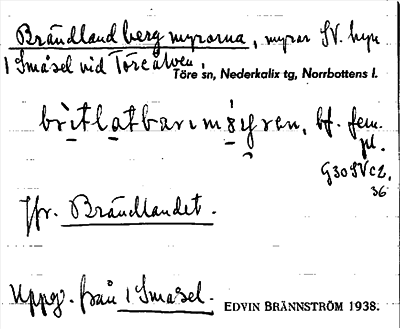 Brändlandbergmyrorna, myrar SV. byn
1 Småsel vid Töreälven.
Töre sn, Nederkalix tg, Norrbottens l.
bf. fem.
pl.
G30SVc2.
36
Jfr. Brändlandet.
Uppg. från 1 Småsel. EDVIN BRÄNNSTRÖM 1938.